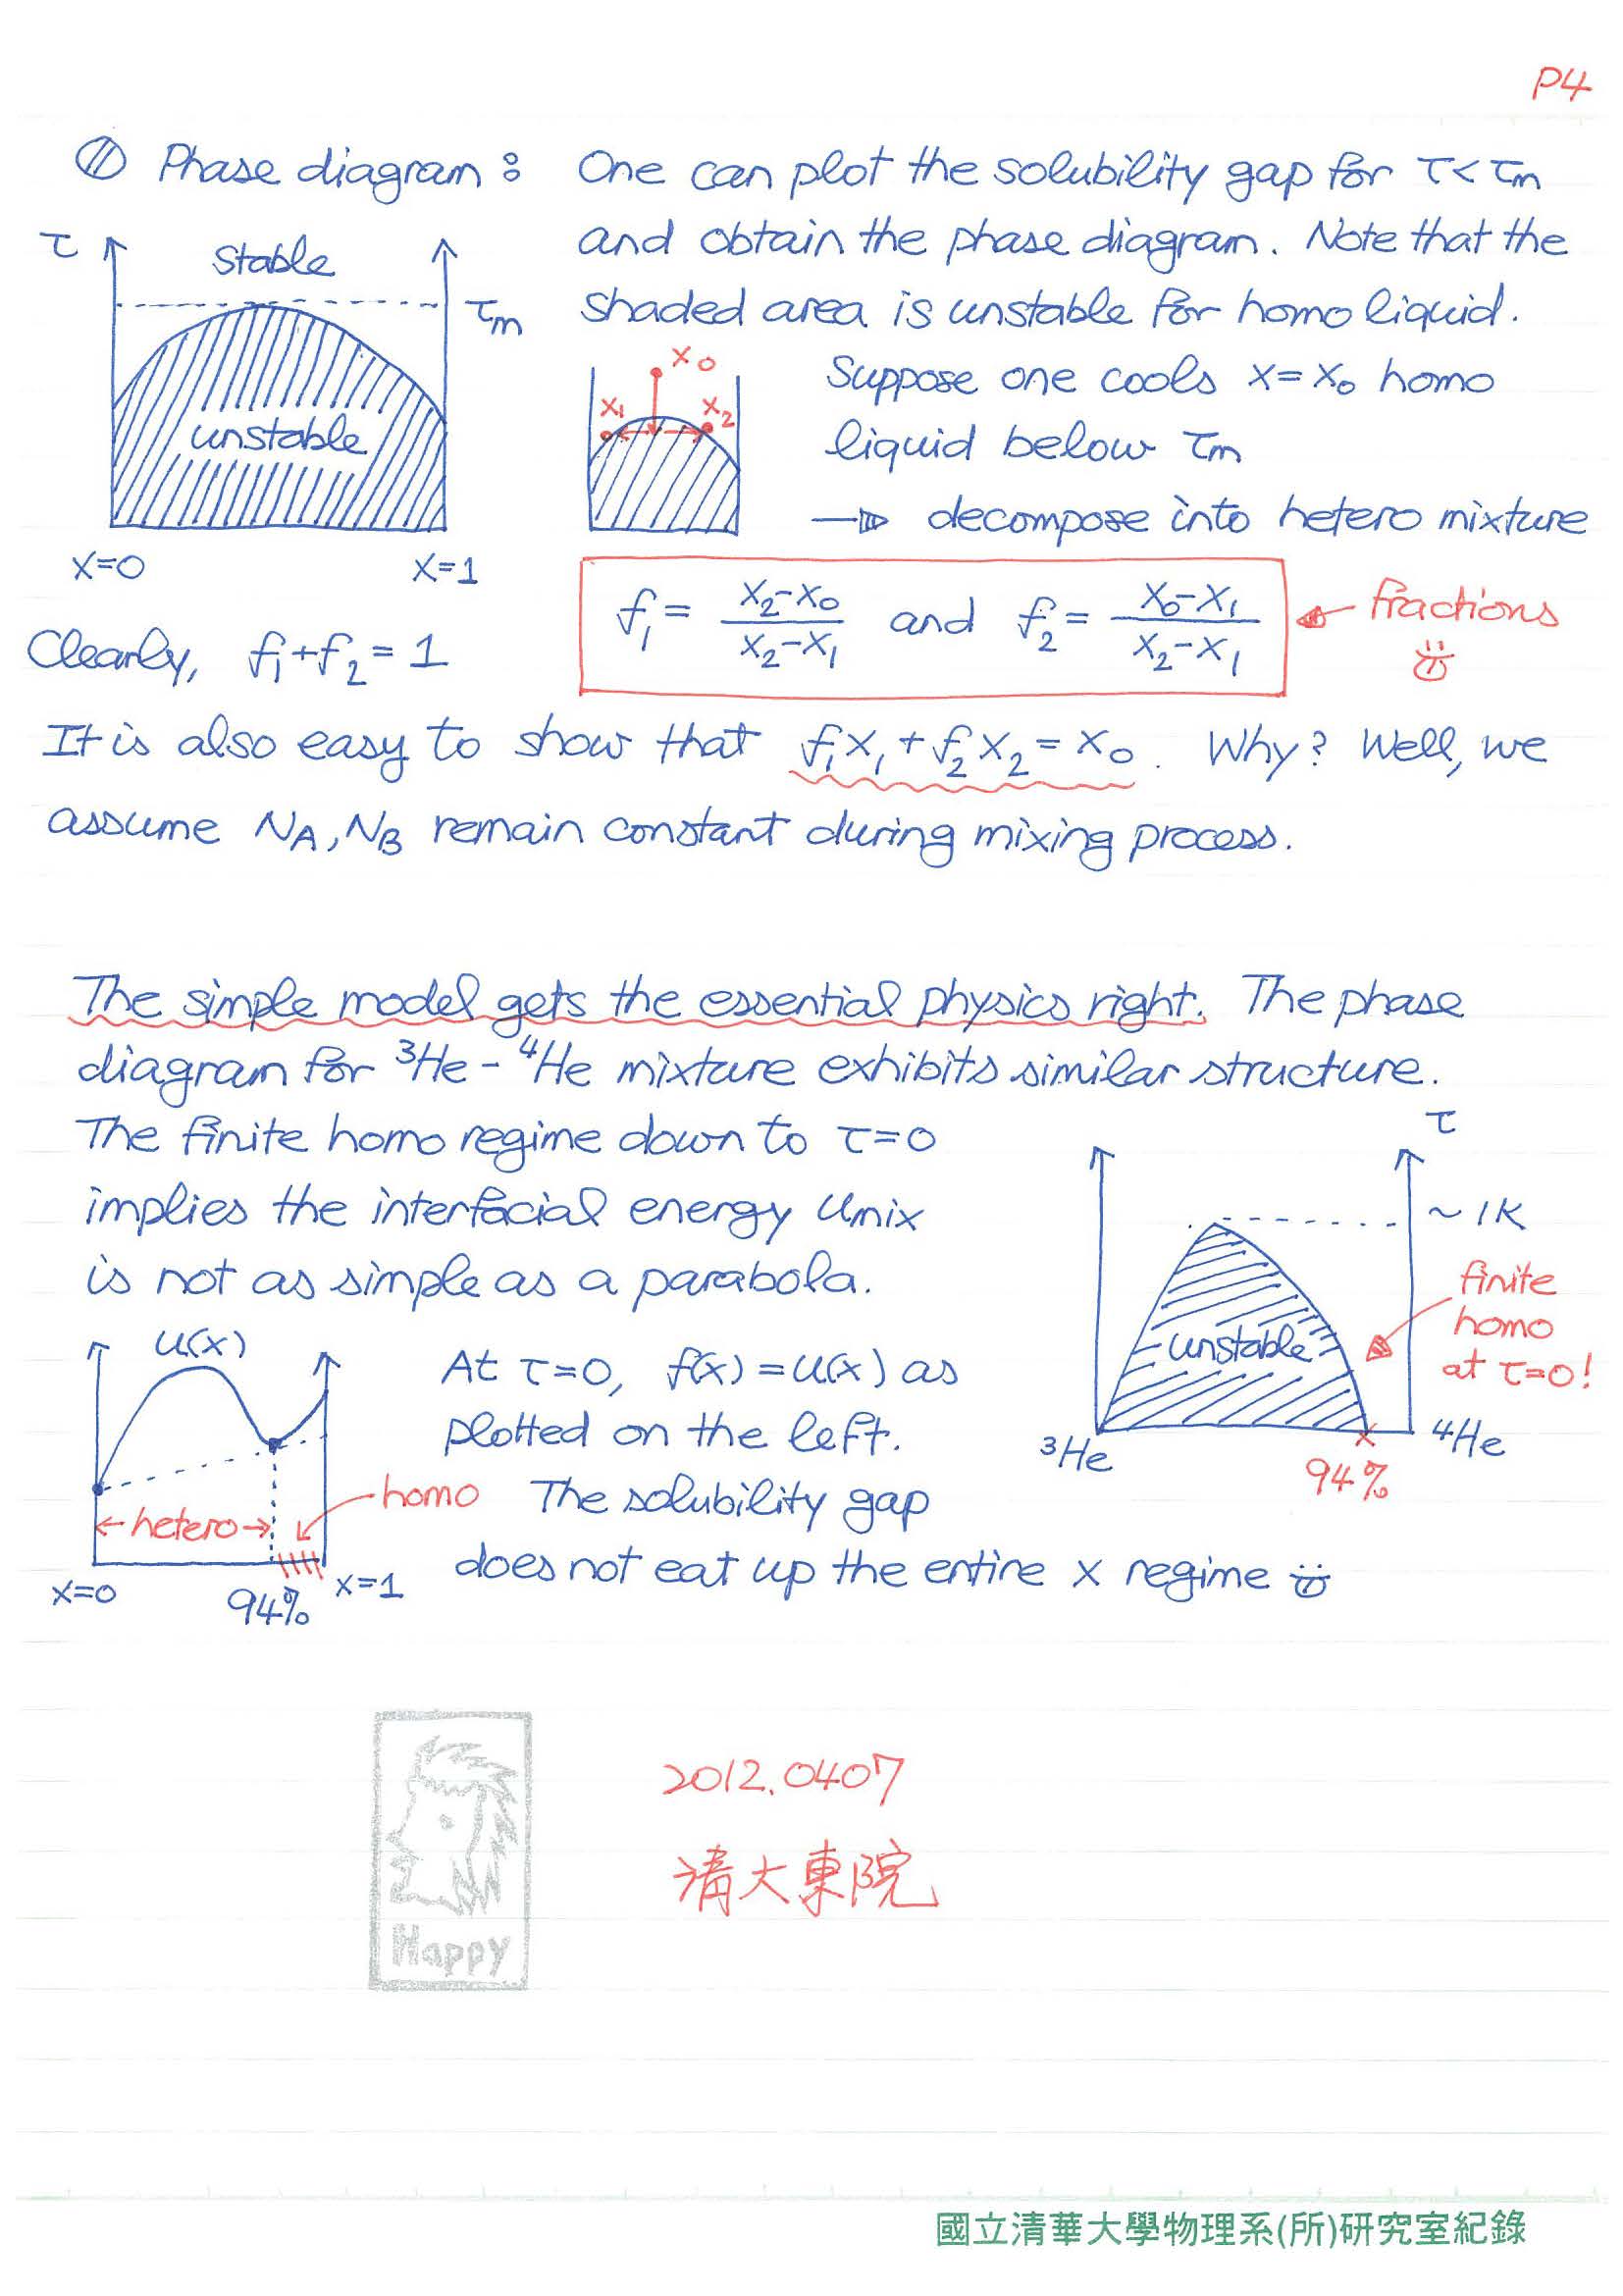 P4
Phase diagram: One can plot the solubility gap for τ < τm
and obtain the phase diagram. Note that the
shaded area is unstable for homo liquid.
τ
stable
τm
unstable
x=0
x=1
x0
x1
x2
Suppose one cools x=x0 homo
liquid below τm
→ decompose into hetero mixture
f1 = (x2-x0)/(x2-x1) and f2 = (x0-x1)/(x2-x1)
fractions
Clearly, f1+f2 = 1
It is also easy to show that f1x1 + f2x2 = x0. Why? Well, we
assume NA, NB remain constant during mixing process.
The simple model gets the essential physics right. The phase
diagram for ³He - ⁴He mixture exhibits similar structure.
The finite homo regime down to τ=0
implies the interfacial energy umix
is not as simple as a parabola.
τ
~1K
unstable
finite
homo
at τ=0!
³He
94%
⁴He
u(x)
homo
←hetero→
x=0
94%
x=1
At τ=0, f(x) = u(x) as
plotted on the left.
The solubility gap
does not eat up the entire x regime
Happy
2012.0407
清大東院
國立清華大學物理系(所)研究室紀錄